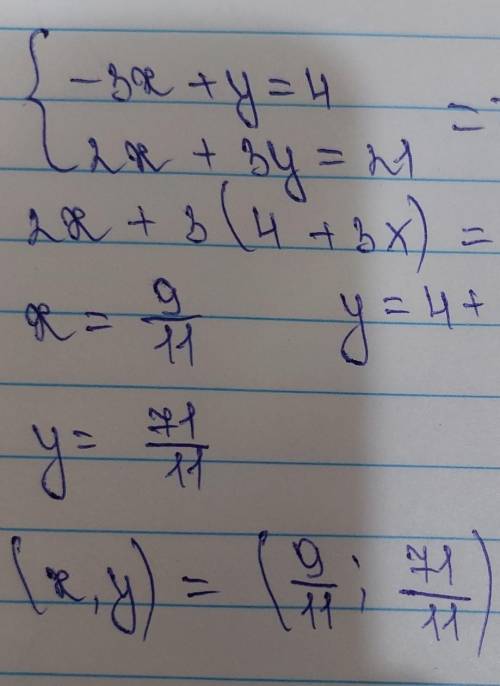 { -3x + y = 4
2x + 3y = 21 =
2x + 3(4 + 3x) =
x = 9/11 y = 4 +
y = 71/11
(x, y) = (9/11; 71/11)